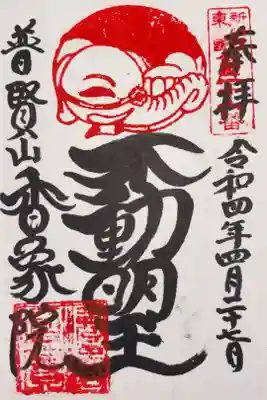 奉拝
令和四年四月二十二日
不動明王
普賢山香象院